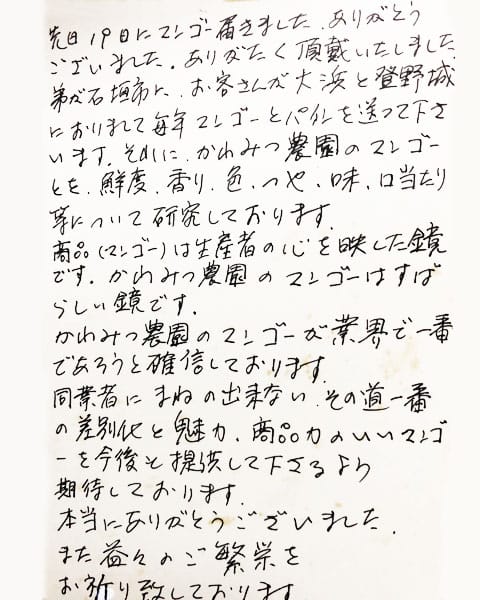 先日19日にマンゴー届きました、ありがとう
ございました。ありがたく頂戴いたしました
弟が石垣市に、お客さんが大浜と登野城
におりまして毎年マンゴーとパインを送って下さ
います。それに、かわみつ農園のマンゴー
とを、鮮度、香り、色、つや、味、口当たり
等について研究しております。
商品(マンゴー)は生産者の心を映した鏡
です。かわみつ農園のマンゴーはすば
らしい鏡です。
かわみつ農園のマンゴーが業界で一番
であろうと確信しております。
同業者にまねの出来ない、その道一番
の差別化と魅力、商品力のいいマンゴ
ーを今後と提供して下さるよう
期待しております。
本当にありがとうございました。
また益々のご繁栄を
お祈り致しております